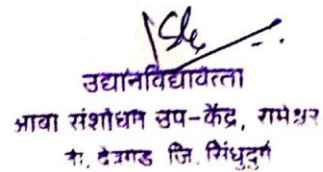 उद्यानविद्यावेत्ता
आंबा संशोधन उप-केंद्र, रामेश्वर
ता. देवगड जि. सिंधुदुर्ग